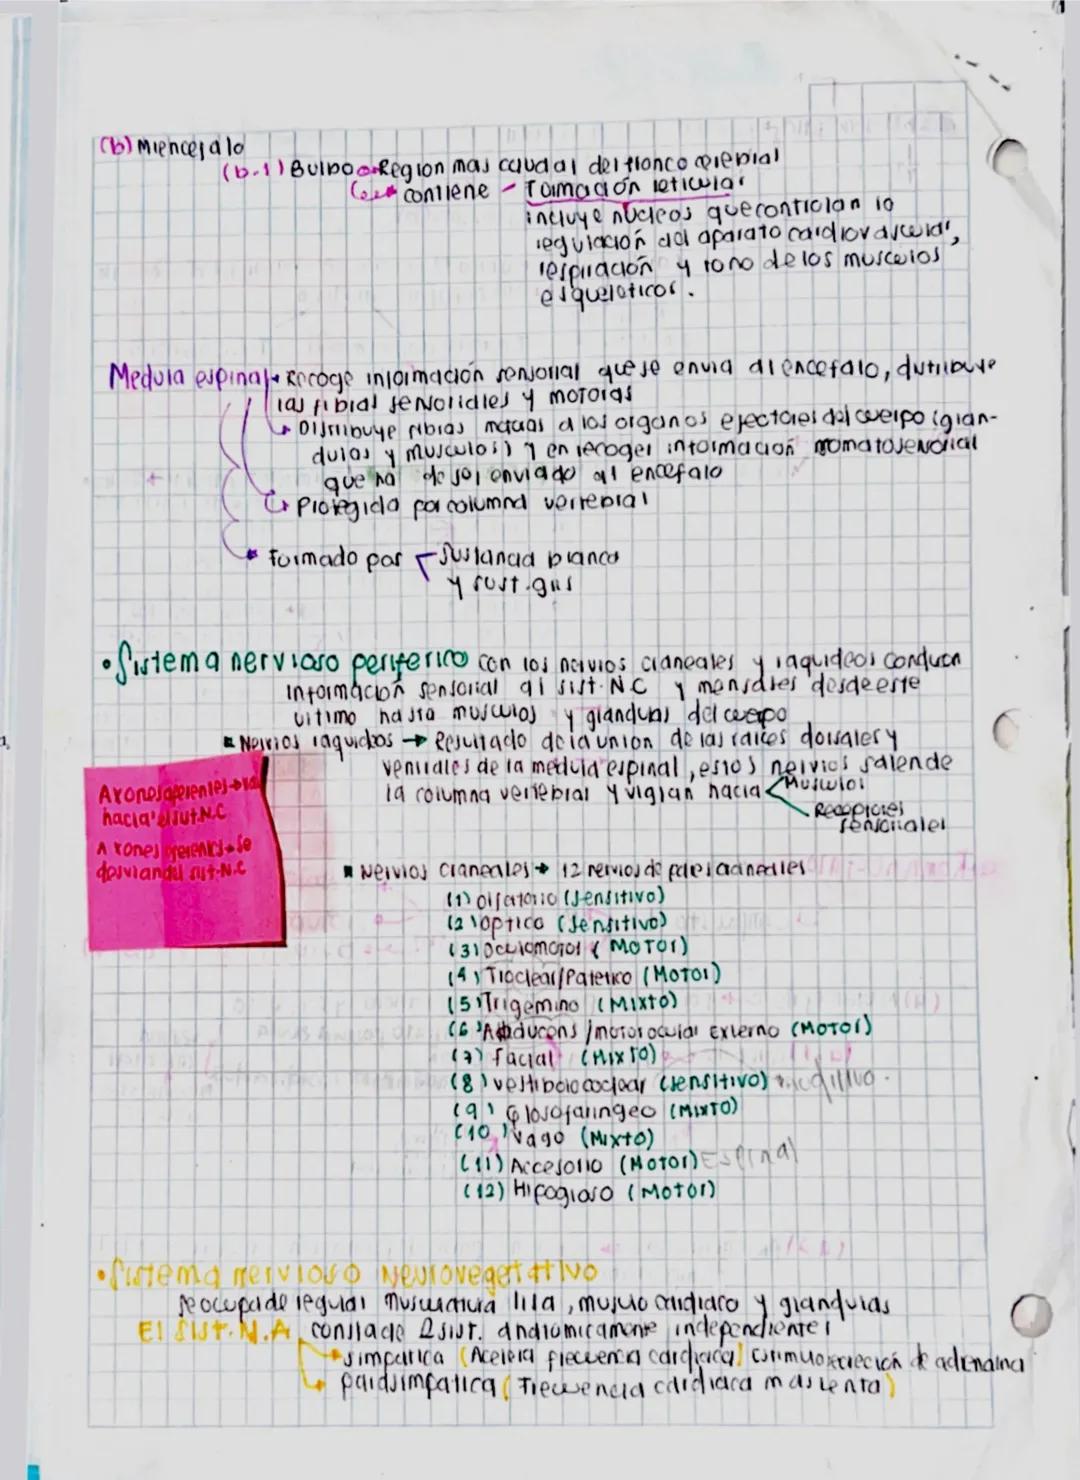 (b) Miencefalo
(b.1) Bulbo Region mas caudal del tronco cerebral
contiene - Formación reticular
incluye nucleos que controlan la
regulación del aparato cardiovascular,
respiración y tono de los musculos
esqueleticos.
Medula espinal Recoge información sensorial que se envia al encefalo, distribuye
las fibras sensoriales y motoras
Distribuye fibras motoras a los organos efectores del cuerpo (glan-
dulas y musculos) y en recoger información somatosensorial
que ha de ser enviado al encefalo
Protegida por columna vertebral
Formado por Sustancia blanca
y sust. gris
• Sistema nervioso periferico con los nervios craneales y raquideos conducen
información sensorial al sist. N.C y mensajes desde este
ultimo hasta musculos y glandulas del cuerpo
Nervios raquideos → Resultado de la union de las raices dorsales y
ventrales de la medula espinal, estos nervios salende
la columna vertebral y viajan hacia Musculos
Receptores
sensoriales
Axones aferentes → va
hacia el sist. N.C
Axones eferentes → se
desvian del sist. N.C
Nervios craneales → 12 nervios de pares craneales
(1) Olfatorio (Sensitivo)
(2) Optico (Sensitivo)
(3) Oculomotor (MOTOr)
(4) Troclear/Patetico (Motor)
(5) Trigemino (Mixto)
(6) Abducens / motor ocular Externo (MOTOr)
(7) facial (Mixto)
(8) vestibolococlear (sensitivo)
(9) Glosofaringeo (MIXTO)
(10) Vago (Mixto)
(11) Accesorio (Motor) Espinal
(12) Hipogloso (MOTOr)
• Sistema nervioso Neurovegetativo
se ocupa de regular musculatura lisa, musculo cardiaco y glandulas
El SIST. N.A consta de 2 sist. anatomicamente independientes
simpatica (Acelera frecuencia cardiaca) estimula secreción de adrenalina
parasimpatica (Frecuencia cardiaca mas lenta)